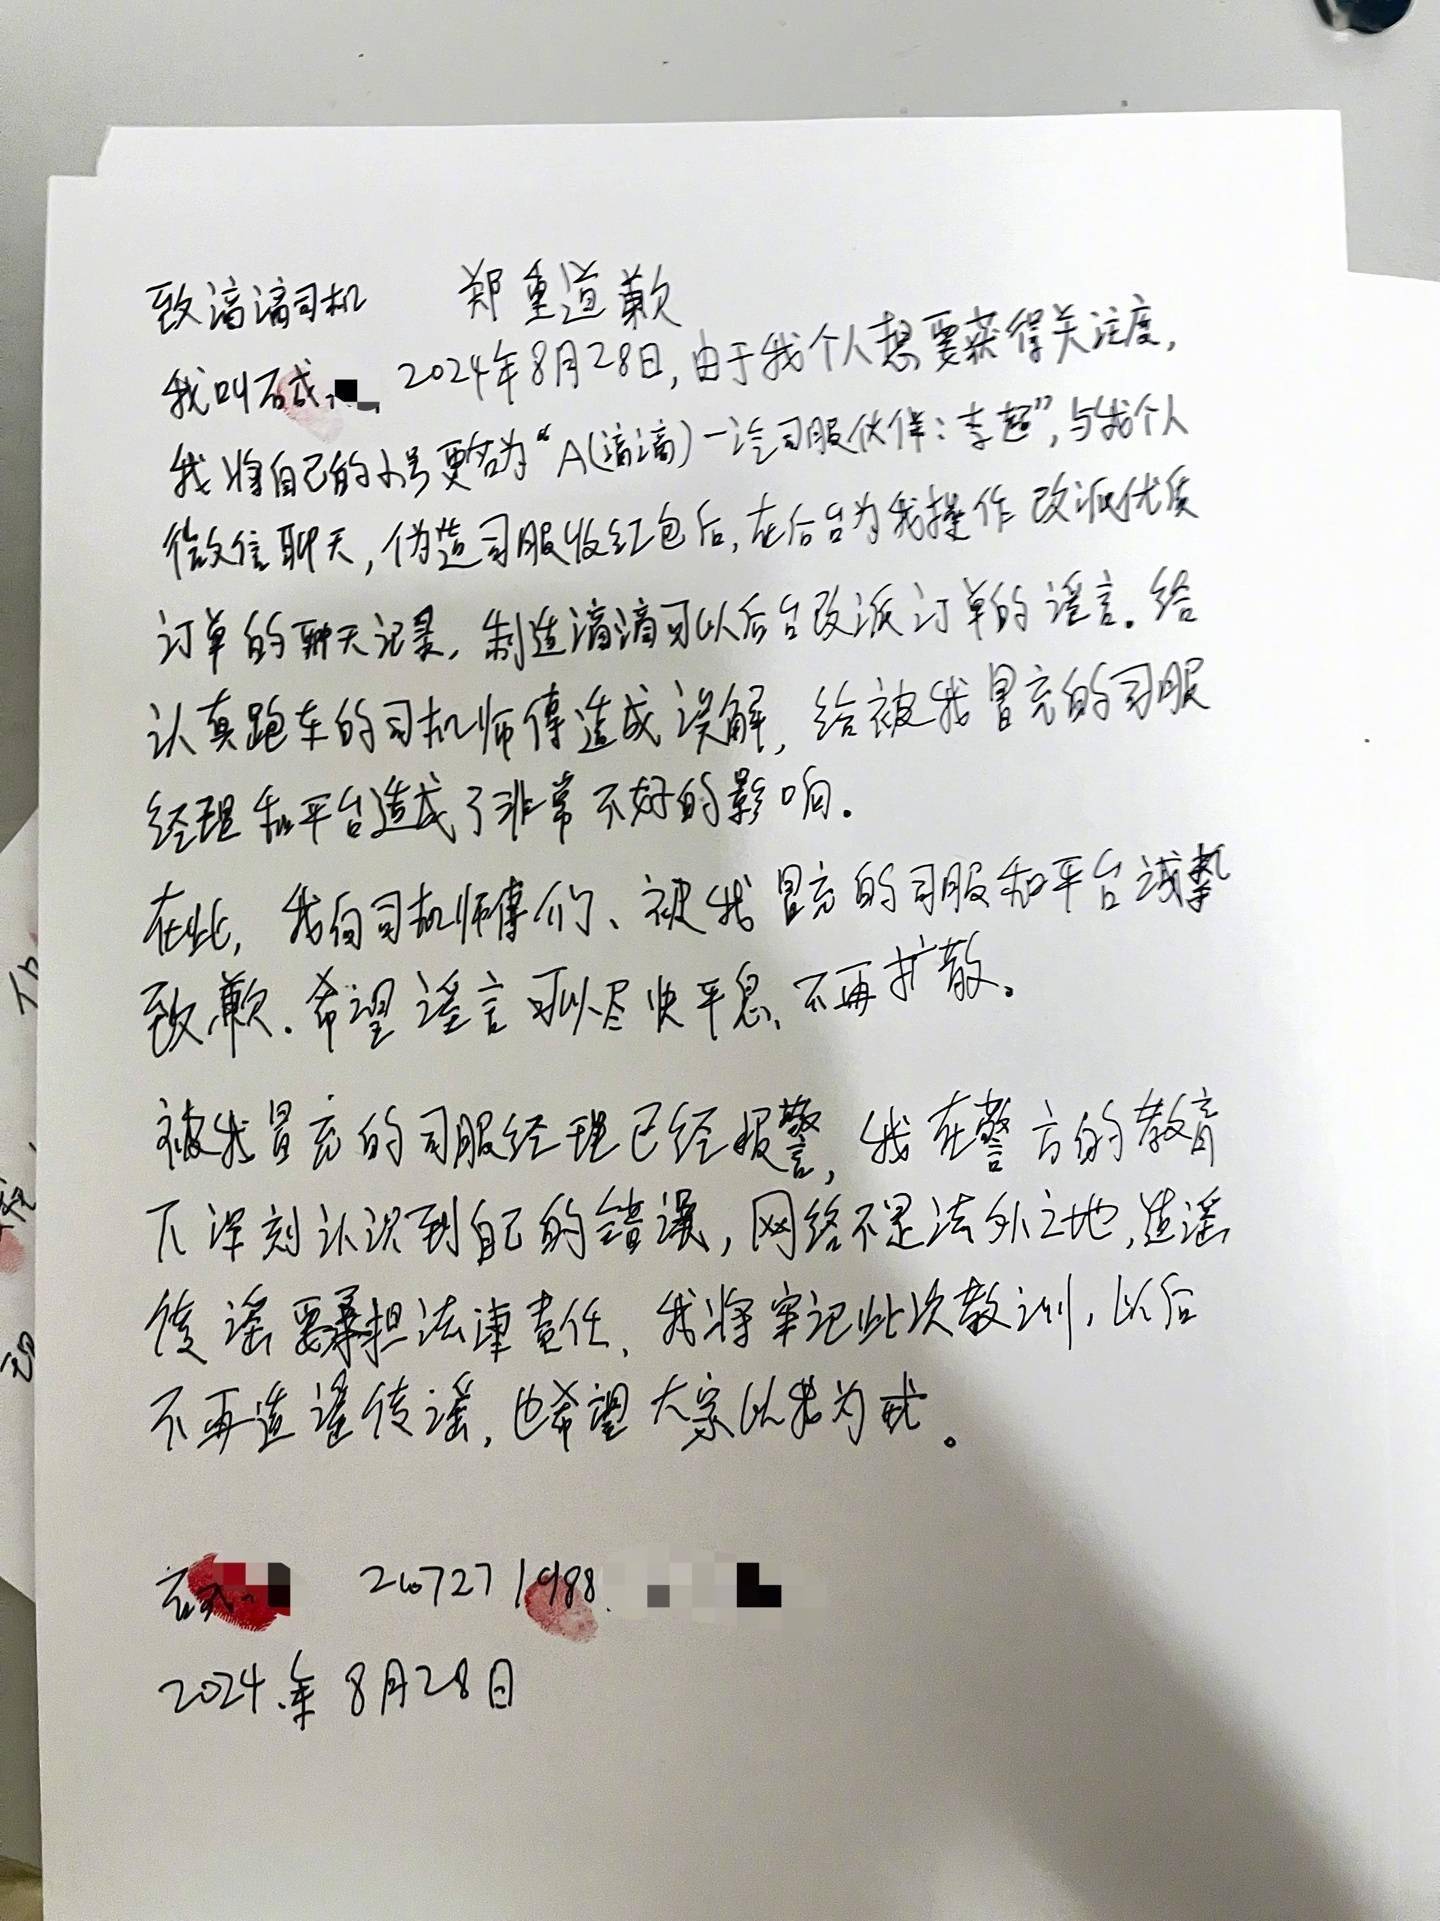 致滴滴司机 郑重道歉
我叫石成 2024年8月28日,由于我个人想要获得关注度,
我将自己的小号更名为“A(滴滴)一汽司服伙伴:李超”,与我个人
微信聊天,伪造司服收红包后,在后台为我操作改派优质
订单的聊天记录,制造滴滴可以后台改派订单的谣言。给
认真跑车的司机师傅造成误解,给被我冒充的司服
经理和平台造成了非常不好的影响.
在此,我向司机师傅们、被我冒充的司服和平台诚挚
致歉.希望谣言可以尽快平息、不再扩散。
被我冒充的司服经理已经报警,我在警方的教育
下深刻认识到自己的错误,网络不是法外之地,造谣
传谣要承担法律责任、我将牢记此次教训,以后
不再造谣传谣,也希望大家以我为戒。
1988
2024.年8月28日